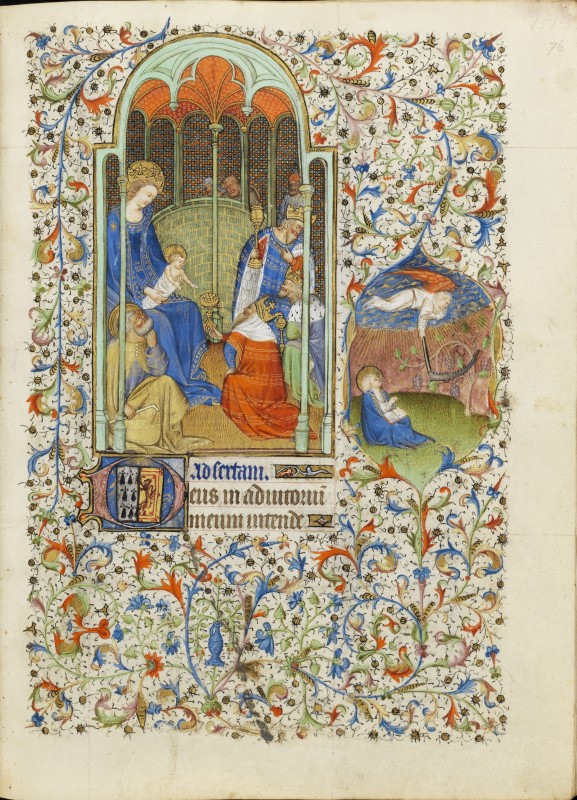 76
Ad sextam.
Deus in adiutoriū
meum intende